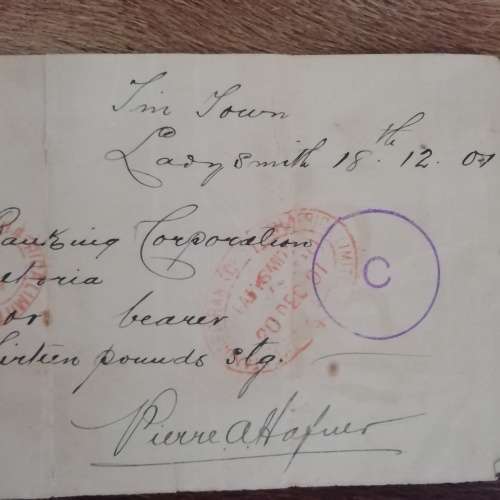 Tin Town
Ladysmith 18th. 12. 01
Banking Corporation
etoria
or bearer
irteen pounds stg.
Pierre A Hafner
LADYSMITH
20 DEC 01
C